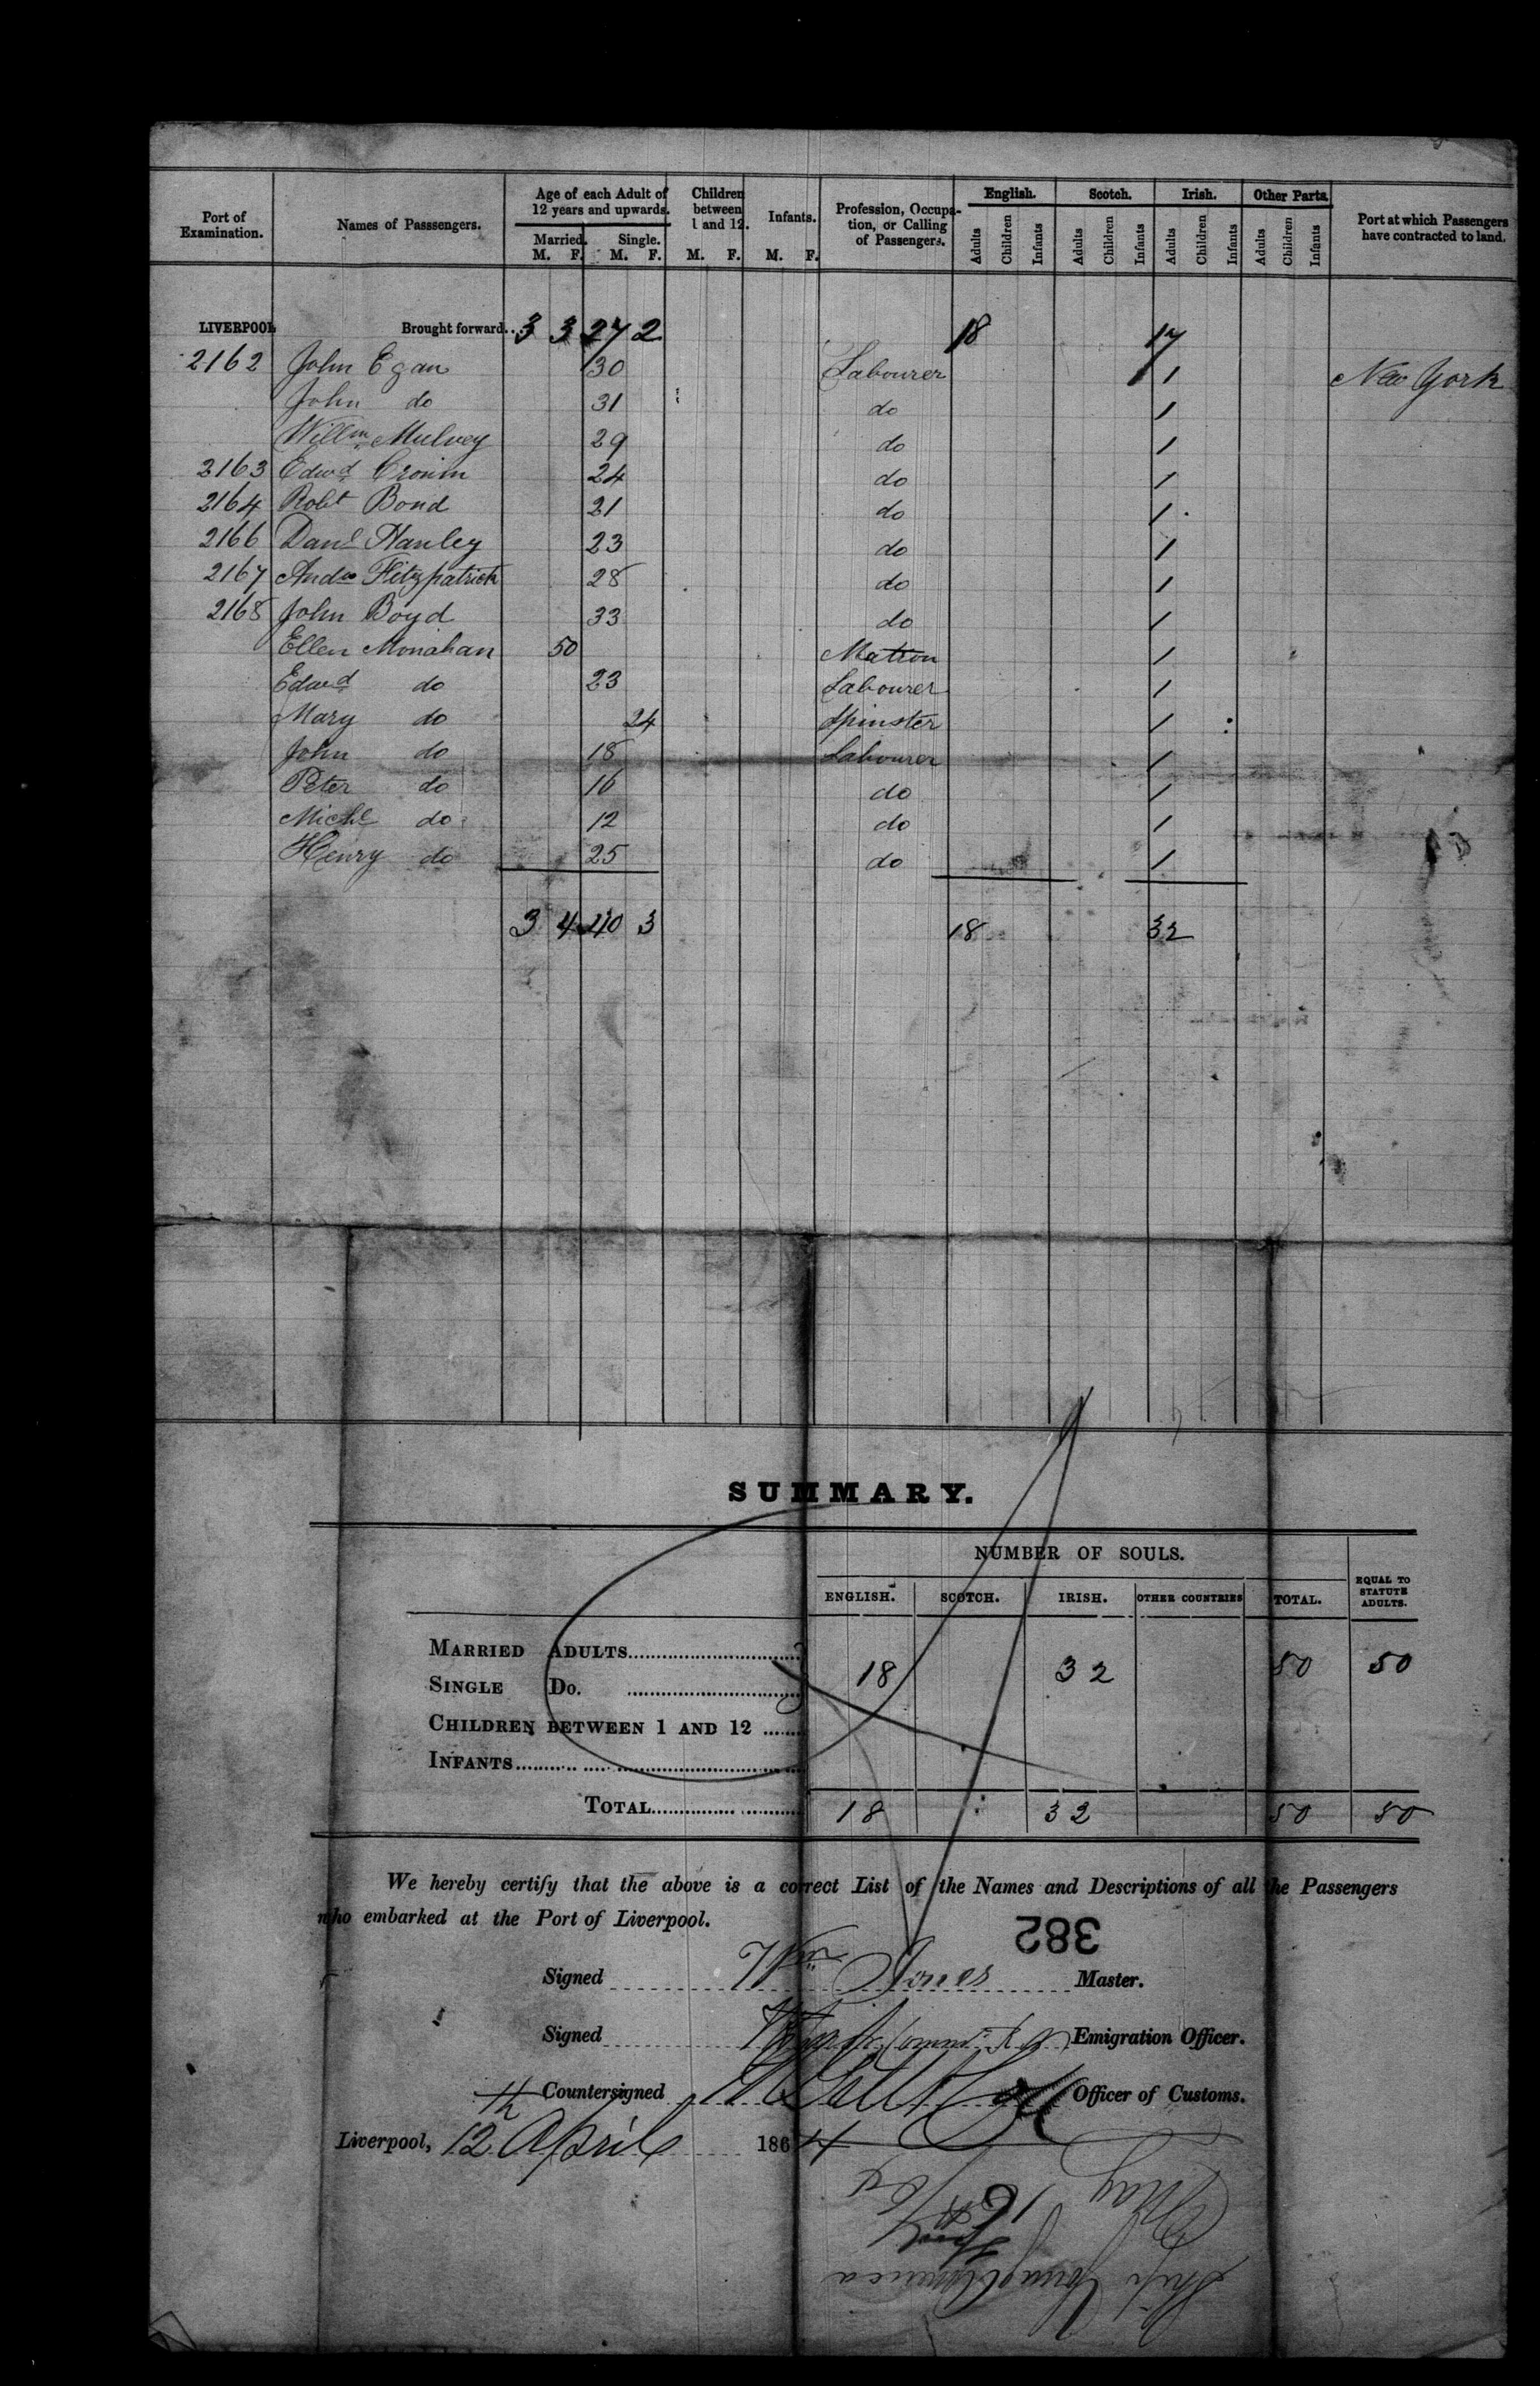 Port of Examination. Names of Passsengers. Age of each Adult of 12 years and upwards. Children between 1 and 12. Infants. Profession, Occupa-tion, or Calling of Passengers. English. Scotch. Irish. Other Parts. Port at which Passengers have contracted to land.
Married. Single.
M. F. M. F. M. F. M. F. Adults Children Infants Adults Children Infants Adults Children Infants Adults Children Infants
LIVERPOOL Brought forward... 3 3 27 2 18 17
2162 John Egan 30 Labourer 1 New York
John do 31 do 1
Willm Mulvey 29 do 1
2163 Edwd Cronin 24 do 1
2164 Robt Bond 21 do 1
2166 Danl Hanley 23 do 1
2167 Andw Fitzpatrick 28 do 1
2168 John Boyd 33 do 1
Ellen Monahan 50 Matron 1
Edwd do 23 Labourer 1
Mary do 24 Spinster 1
John do 18 Labourer 1
Peter do 16 do 1
Michl do 12 do 1
Henry do 25 do 1
3 4 40 3 18 32
SUMMARY.
NUMBER OF SOULS.
ENGLISH. SCOTCH. IRISH. OTHER COUNTRIES TOTAL. EQUAL TO STATUTE ADULTS.
MARRIED ADULTS
SINGLE DO. 18 32 50 50
CHILDREN BETWEEN 1 AND 12
INFANTS
TOTAL 18 32 50 50
We hereby certify that the above is a correct List of the Names and Descriptions of all the Passengers
who embarked at the Port of Liverpool.
382
Signed Wm Jones Master.
Signed Emigration Officer.
Countersigned Officer of Customs.
Liverpool, 12th April 1864
May
Ship Young America